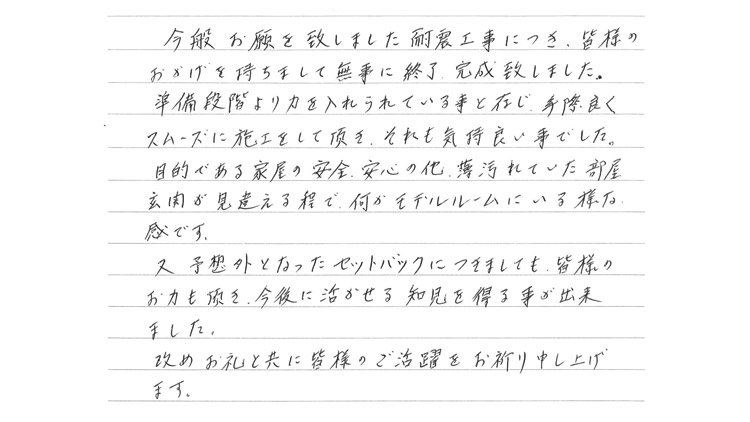 今般 お願を致しました耐震工事につき、皆様の
おかげを持ちまして無事に終了、完成致しました。
準備段階より力を入れられている事と存じ、手際良く
スムーズに施工をして頂き、それも気持良い事でした。
目的である家屋の安全、安心の他、薄汚れていた部屋
玄関が見違える程で、何かモデルルームにいる様な
感です。
又 予想外となったセットバックにつきましても、皆様の
お力も頂き、今後に活かせる知見を得る事が出来
ました。
改めお礼と共に皆様のご活躍をお祈り申し上げ
ます。